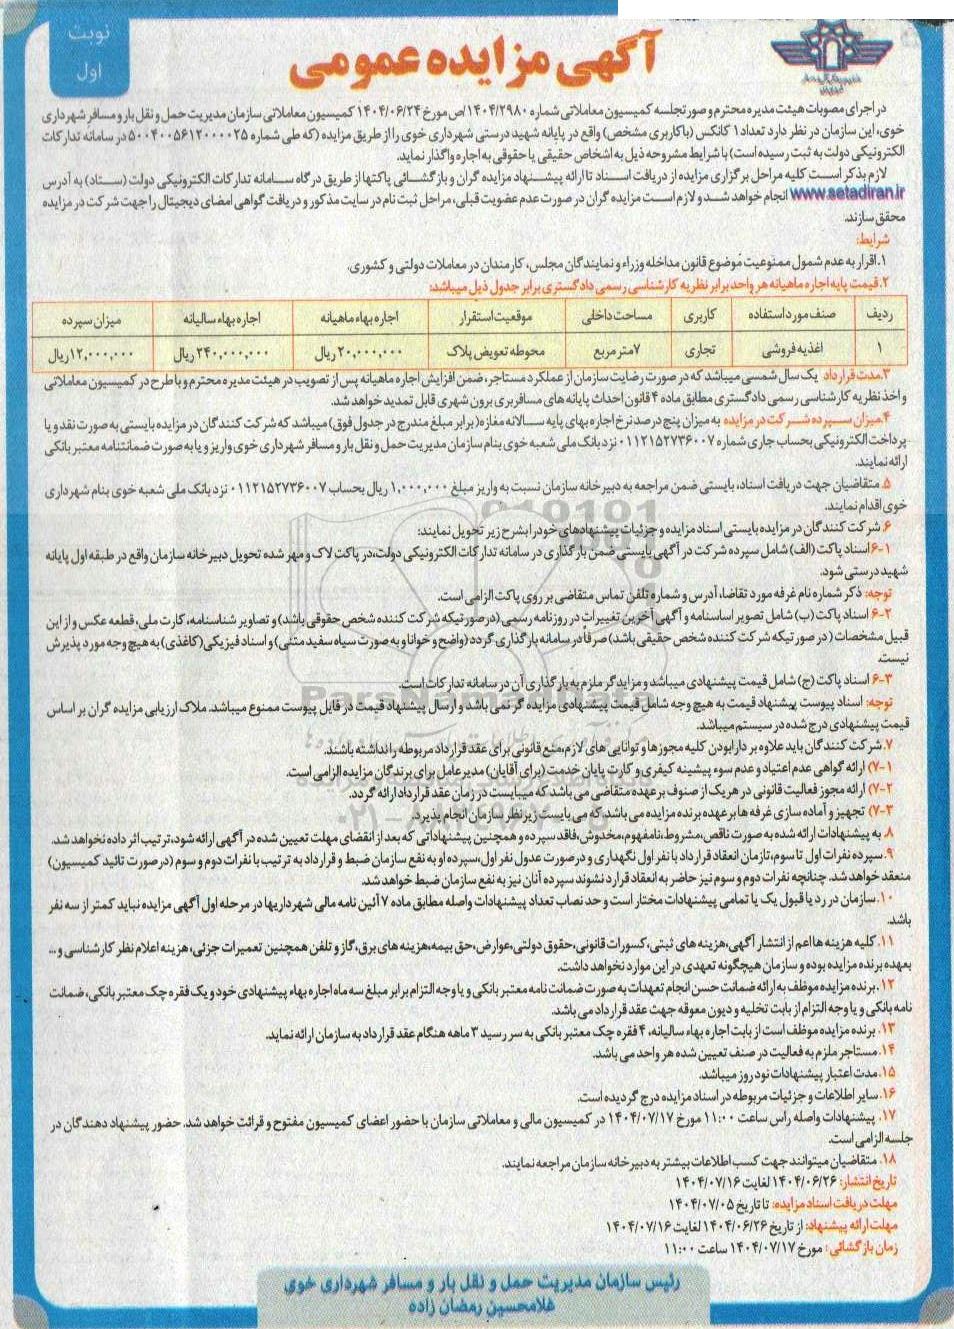 نوبت
اول
آگهی مزایده عمومی
در اجرای مصوبات هیئت مدیره محترم و صورتجلسه کمیسیون معاملاتی شماره ۱۴۰۴/۲۹۸۰/ص مورخ ۱۴۰۴/۰۶/۲۴ کمیسیون معاملاتی سازمان مدیریت حمل و نقل بار و مسافر شهرداری
خوی، این سازمان در نظر دارد تعداد ۱ کانکس (با کاربری مشخص) واقع در پایانه شهید درستی شهرداری خوی را از طریق مزایده (که طی شماره ۵۰۰۴۰۰۵۶۱۲۰۰۰۰۲۵ در سامانه تدارکات
الکترونیکی دولت به ثبت رسیده است) با شرایط مشروحه ذیل به اشخاص حقیقی یا حقوقی به اجاره واگذار نماید.
لازم بذکر است کلیه مراحل برگزاری مزایده از دریافت اسناد تا ارائه پیشنهاد مزایده گران و بازگشائی پاکتها از طریق درگاه سامانه تدارکات الکترونیکی دولت (ستاد) به آدرس
www.setadiran.ir انجام خواهد شد و لازم است مزایده گران در صورت عدم عضویت قبلی، مراحل ثبت نام در سایت مذکور و دریافت گواهی امضای دیجیتال را جهت شرکت در مزایده
محقق سازند.
شرایط:
۱.اقرار به عدم شمول ممنوعیت موضوع قانون مداخله وزراء و نمایندگان مجلس، کارمندان در معاملات دولتی و کشوری.
۲.قیمت پایه اجاره ماهیانه هر واحد برابر نظریه کارشناسی رسمی دادگستری برابر جدول ذیل میباشد:
ردیف صنف مورد استفاده کاربری مساحت داخلی موقعیت استقرار اجاره بهاء ماهیانه اجاره بهاء سالیانه میزان سپرده
۱ اغذیه فروشی تجاری ۷ متر مربع محوطه تعویض پلاک ۲۰,۰۰۰,۰۰۰ ریال ۲۴۰,۰۰۰,۰۰۰ ریال ۱۲,۰۰۰,۰۰۰ ریال
۳.مدت قرارداد یک سال شمسی میباشد که در صورت رضایت سازمان از عملکرد مستاجر، ضمن افزایش اجاره ماهیانه پس از تصویب در هیئت مدیره محترم و با طرح در کمیسیون معاملاتی
و اخذ نظریه کارشناسی رسمی دادگستری مطابق ماده ۴ قانون احداث پایانه های مسافربری برون شهری قابل تمدید خواهد شد.
۴.میزان سپرده شرکت در مزایده به میزان پنج درصد نرخ اجاره بهای پایه سالانه مغازه (برابر مبلغ مندرج در جدول فوق) میباشد که شرکت کنندگان در مزایده بایستی به صورت نقد و یا
پرداخت الکترونیکی بحساب جاری شماره ۰۱۱۲۱۵۲۷۳۶۰۰۷ نزد بانک ملی شعبه خوی بنام سازمان مدیریت حمل و نقل بار و مسافر شهرداری خوی واریز و یا به صورت ضمانتنامه معتبر بانکی
ارائه نمایند.
۵. متقاضیان جهت دریافت اسناد، بایستی ضمن مراجعه به دبیرخانه سازمان نسبت به واریز مبلغ ۱,۰۰۰,۰۰۰ ریال بحساب ۰۱۱۲۱۵۲۷۳۶۰۰۷ نزد بانک ملی شعبه خوی بنام شهرداری
خوی اقدام نمایند.
۶. شرکت کنندگان در مزایده بایستی اسناد مزایده و جزئیات پیشنهادهای خود را بشرح زیر تحویل نمایند:
۶-۱ اسناد پاکت (الف) شامل سپرده شرکت در آگهی بایستی ضمن بارگذاری در سامانه تدارکات الکترونیکی دولت، در پاکت لاک و مهر شده تحویل دبیرخانه سازمان واقع در طبقه اول پایانه
شهید درستی شود.
توجه: ذکر شماره نام غرفه مورد تقاضا، آدرس و شماره تلفن تماس متقاضی بر روی پاکت الزامی است.
۶-۲ اسناد پاکت (ب) شامل تصویر اساسنامه و آگهی آخرین تغییرات در روزنامه رسمی (در صورتیکه شرکت کننده شخص حقوقی باشد) و تصاویر شناسنامه، کارت ملی، قطعه عکس و از این
قبیل مشخصات (در صورتیکه شرکت کننده شخص حقیقی باشد) صرفا در سامانه بارگذاری گردد (واضح و خوانا و به صورت سیاه سفید متنی) و اسناد فیزیکی (کاغذی) به هیچ وجه مورد پذیرش
نیست.
۶-۳ اسناد پاکت (ج) شامل قیمت پیشنهادی میباشد و مزایدگر ملزم به بارگذاری آن در سامانه تدارکات است.
توجه: اسناد پیوست پیشنهاد قیمت به هیچ وجه شامل قیمت پیشنهادی مزایده گر نمی باشد و ارسال پیشنهاد قیمت در فایل پیوست ممنوع میباشد. ملاک ارزیابی مزایده گران بر اساس
قیمت پیشنهادی درج شده در سیستم میباشد.
۷. شرکت کنندگان باید علاوه بر دارا بودن کلیه مجوزها و توانایی های لازم، منع قانونی برای عقد قرارداد مربوطه را نداشته باشند.
۷-۱) ارائه گواهی عدم اعتیاد و عدم سوء پیشینه کیفری و کارت پایان خدمت (برای آقایان) مدیرعامل برای برندگان مزایده الزامی است.
۷-۲) ارائه مجوز فعالیت قانونی در هریک از صنوف بر عهده متقاضی می باشد که میبایست در زمان عقد قرارداد ارائه گردد.
۷-۳) تجهیز و آماده سازی غرفه ها بر عهده برنده مزایده می باشد، که می بایست زیر نظر سازمان انجام پذیرد.
۸. به پیشنهادات ارائه شده به صورت ناقص، مشروط، نامفهوم، مخدوش، فاقد سپرده و همچنین پیشنهاداتی که بعد از انقضای مهلت تعیین شده در آگهی ارائه شود، ترتیب اثر داده نخواهد شد.
۹. سپرده نفرات اول تا سوم، تا زمان انعقاد قرارداد با نفر اول نگهداری و در صورت عدول نفر اول، سپرده او به نفع سازمان ضبط و قرارداد به ترتیب با نفرات دوم و سوم (در صورت تائید کمیسیون)
منعقد خواهد شد. چنانچه نفرات دوم و سوم نیز حاضر به انعقاد قرارد نشوند سپرده آنان نیز به نفع سازمان ضبط خواهد شد.
۱۰. سازمان در رد یا قبول یک یا تمامی پیشنهادات مختار است و حد نصاب تعداد پیشنهادات واصله مطابق ماده ۷ آئین نامه مالی شهرداریها در مرحله اول آگهی مزایده نباید کمتر از سه نفر
باشد.
۱۱. کلیه هزینه ها اعم از انتشار آگهی، هزینه های ثبتی، کسورات قانونی، حقوق دولتی، عوارض، حق بیمه، هزینه های برق، گاز و تلفن همچنین تعمیرات جزئی، هزینه اعلام نظر کارشناسی و ...
بعهده برنده مزایده بوده و سازمان هیچگونه تعهدی در این موارد نخواهد داشت.
۱۲. برنده مزایده موظف به ارائه ضمانت حسن انجام تعهدات به صورت ضمانت نامه معتبر بانکی و یا وجه التزام برابر مبلغ سه ماه اجاره بهاء پیشنهادی خود و یک فقره چک معتبر بانکی، ضمانت
نامه بانکی و یا وجه التزام از بابت تخلیه و دیون معوقه جهت عقد قرارداد می باشد.
۱۳. برنده مزایده موظف است از بابت اجاره بهاء سالیانه، ۴ فقره چک معتبر بانکی به سر رسید ۳ ماهه هنگام عقد قرارداد به سازمان ارائه نماید.
۱۴. مستاجر ملزم به فعالیت در صنف تعیین شده هر واحد می باشد.
۱۵. مدت اعتبار پیشنهادات نود روز میباشد.
۱۶. سایر اطلاعات و جزئیات مربوطه در اسناد مزایده درج گردیده است.
۱۷. پیشنهادات واصله راس ساعت ۱۱:۰۰ مورخ ۱۴۰۴/۰۷/۱۷ در کمیسیون مالی و معاملاتی سازمان با حضور اعضای کمیسیون مفتوح و قرائت خواهد شد. حضور پیشنهاد دهندگان در
جلسه الزامی است.
۱۸. متقاضیان میتوانند جهت کسب اطلاعات بیشتر به دبیرخانه سازمان مراجعه نمایند.
تاریخ انتشار: ۱۴۰۴/۰۶/۲۶ لغایت ۱۴۰۴/۰۷/۱۶
مهلت دریافت اسناد مزایده: تا تاریخ ۱۴۰۴/۰۷/۰۵
مهلت ارائه پیشنهاد: از تاریخ ۱۴۰۴/۰۶/۲۶ لغایت ۱۴۰۴/۰۷/۱۶
زمان بازگشائی: مورخ ۱۴۰۴/۰۷/۱۷ ساعت ۱۱:۰۰
رئیس سازمان مدیریت حمل و نقل بار و مسافر شهرداری خوی
غلامحسین رمضان زاده